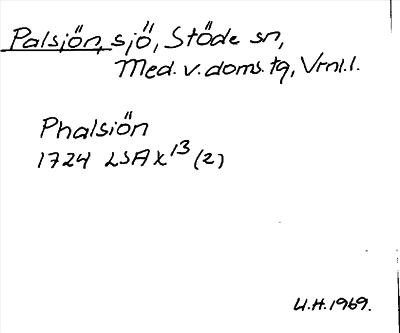 Palsjön, sjö, Stöde sn,
Med. v. doms. tg, Vrnl. l.
Phalsiön
1724 LSA X 13 (2)
U.H. 1969.